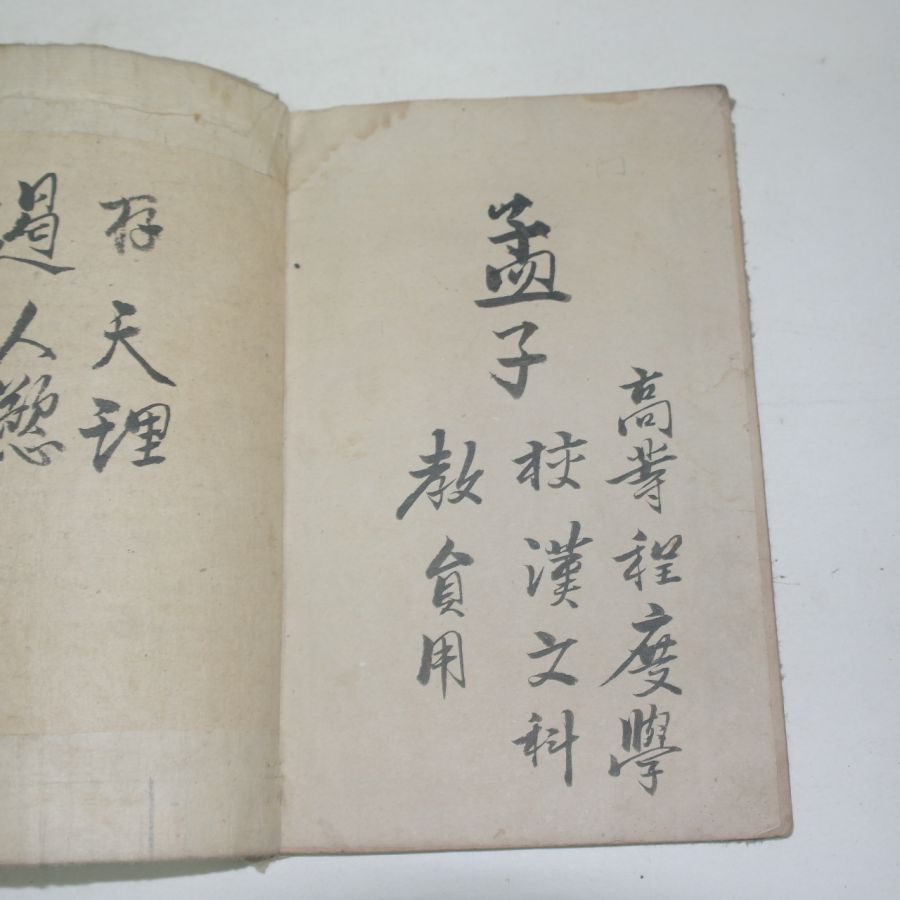 孟子
高等程度學
校漢文科
教員用
存天理
遏人慾